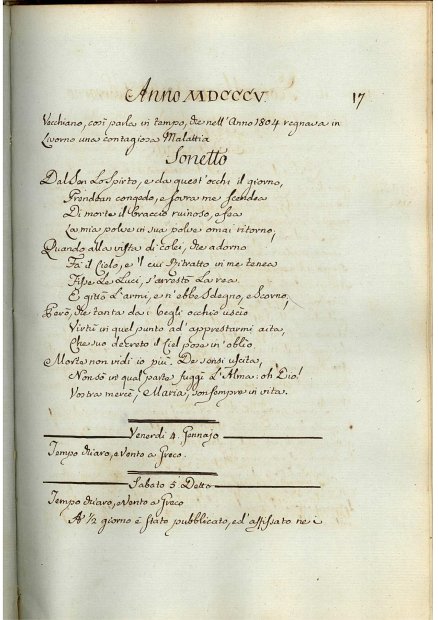 Anno MDCCCV.
17
Vecchiano, così parla in tempo, che nell'Anno 1804 regnava in
Livorno una contagiosa Malattia
Sonetto
Dal Sen Lo Spirto, e da quest'occhi il giorno,
Prendean congedo, e sovra me scendea
Di morte il braccio ruinoso, e fea
La mia polve in sua polve omai ritorno,
Quando alla vista di colei, che adorno
Fà il Cielo, e 'l cui Ritratto in me tenea
Fisse Le Luci, s'arrestò La rea
E gittò L'armi, e n'ebbe Sdegno, e Scorno,
Però, che tanta da i begli occhi uscìo
Virtù in quel punto ad'apprestarmi aita,
Che suo decreto il Ciel pose in'oblio.
e Morte non vidi io più. De sensi uscita,
Non sò in qual parte fuggì L'Alma: oh Dio!
Vostra mercè, Maria, son sempre in vita.
Venerdì 4. Gennajo
Tempo chiaro, e Vento a Greco.
Sabato 5. Detto
Tempo chiaro, e Vento a Greco
A' 1/2 giorno è stato pubblicato, ed'affissato ne i